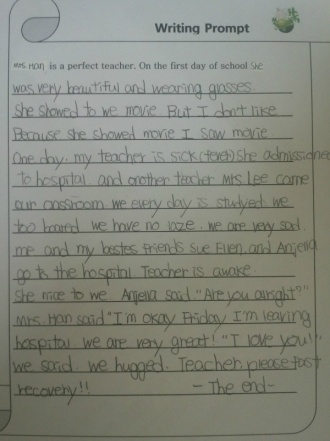 Writing Prompt
Mrs. Han is a perfect teacher. On the first day of school she
was very beautiful and wearing glasses.
She showed to we movie But I don't like
Because she showed movie I saw movie.
One day. my teacher is sick (fever) She admissioned
to hospital. and another teacher Mrs Lee came
our classroom we every day is studyed. we
too bored we have no laze. we are very sad.
me and my bestes friends Sue Even, and Anjella
go to the hospital. Teacher is awake.
She nice to we Anjella said "Are you alright?"
Mrs. Han said "I'm okay Friday I'm leaving
hospital we are very great! "I love you!"
we said. we hugged. Teacher, please fast
recovery!! - The end-